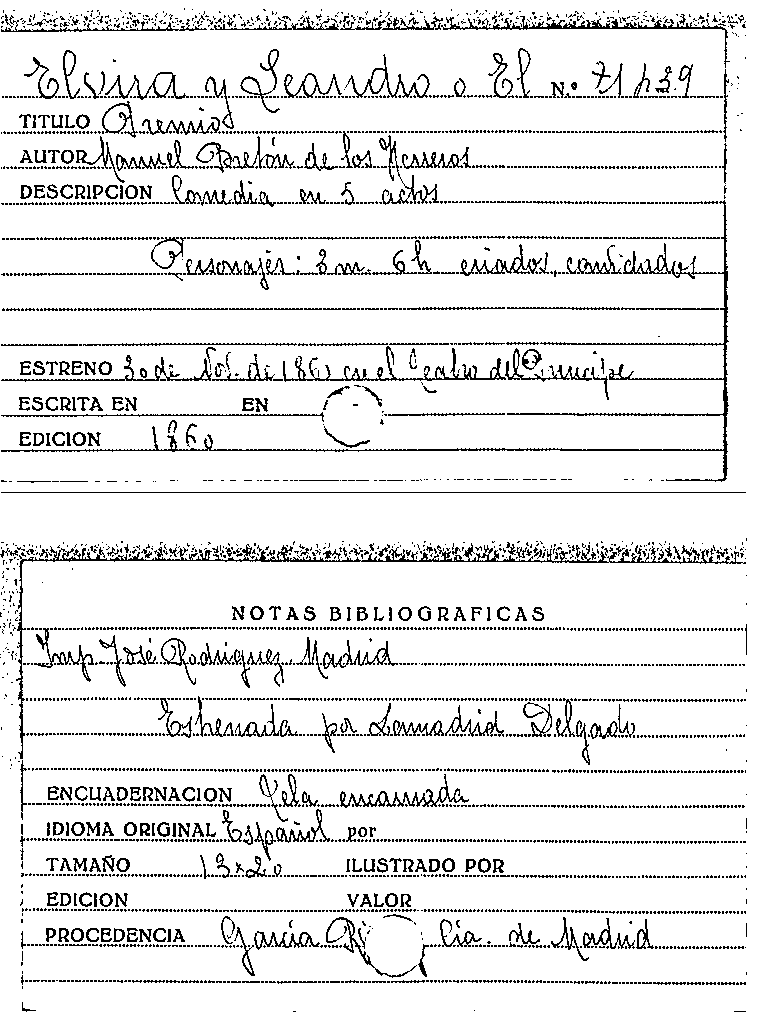 Elvira y Leandro o El N.º 71439
TITULO Premio
AUTOR Manuel Bretón de los Herreros
DESCRIPCION Comedia en 5 actos
Personajes: 3 m. 6 h. criados, convidados
ESTRENO 30 de Nov. de 1860 en el Teatro del Principe
ESCRITA EN EN
EDICION 1860
NOTAS BIBLIOGRAFICAS
Imp. José Rodriguez. Madrid
Estrenada por Lamadrid Delgado
ENCUADERNACION Tela encarnada
IDIOMA ORIGINAL Español por
TAMAÑO 13x20 ILUSTRADO POR
EDICION VALOR
PROCEDENCIA García Cía. de Madrid